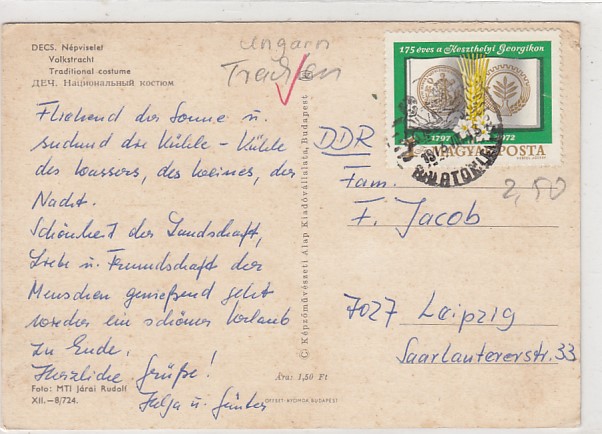 DECS. Népviselet
Volkstracht
Traditional costume
ДЕЧ. Национальный костюм
Ungarn
Trachten
Fliehend der Sonne u.
suchend die Kühle - Kühle
des Wassers, des Weines, der
Nacht.
Schönheit der Landschaft,
Liebe u. Freundschaft der
Menschen genießend geht
wieder ein schöner Urlaub
zu Ende.
Herzliche Grüße!
Helga u. Günter
Foto: MTI Járai Rudolf
XII.-8/724.
© Képzőművészeti Alap Kiadóvállalata, Budapest
Ára: 1,50 Ft
OFFSET-NYOMDA BUDAPEST
175 éves a Keszthelyi Georgikon
1797
1972
MAGYAR POSTA
DDR
Fam.
F. Jacob
7027 Leipzig
Saarlautererstr. 33
2,50